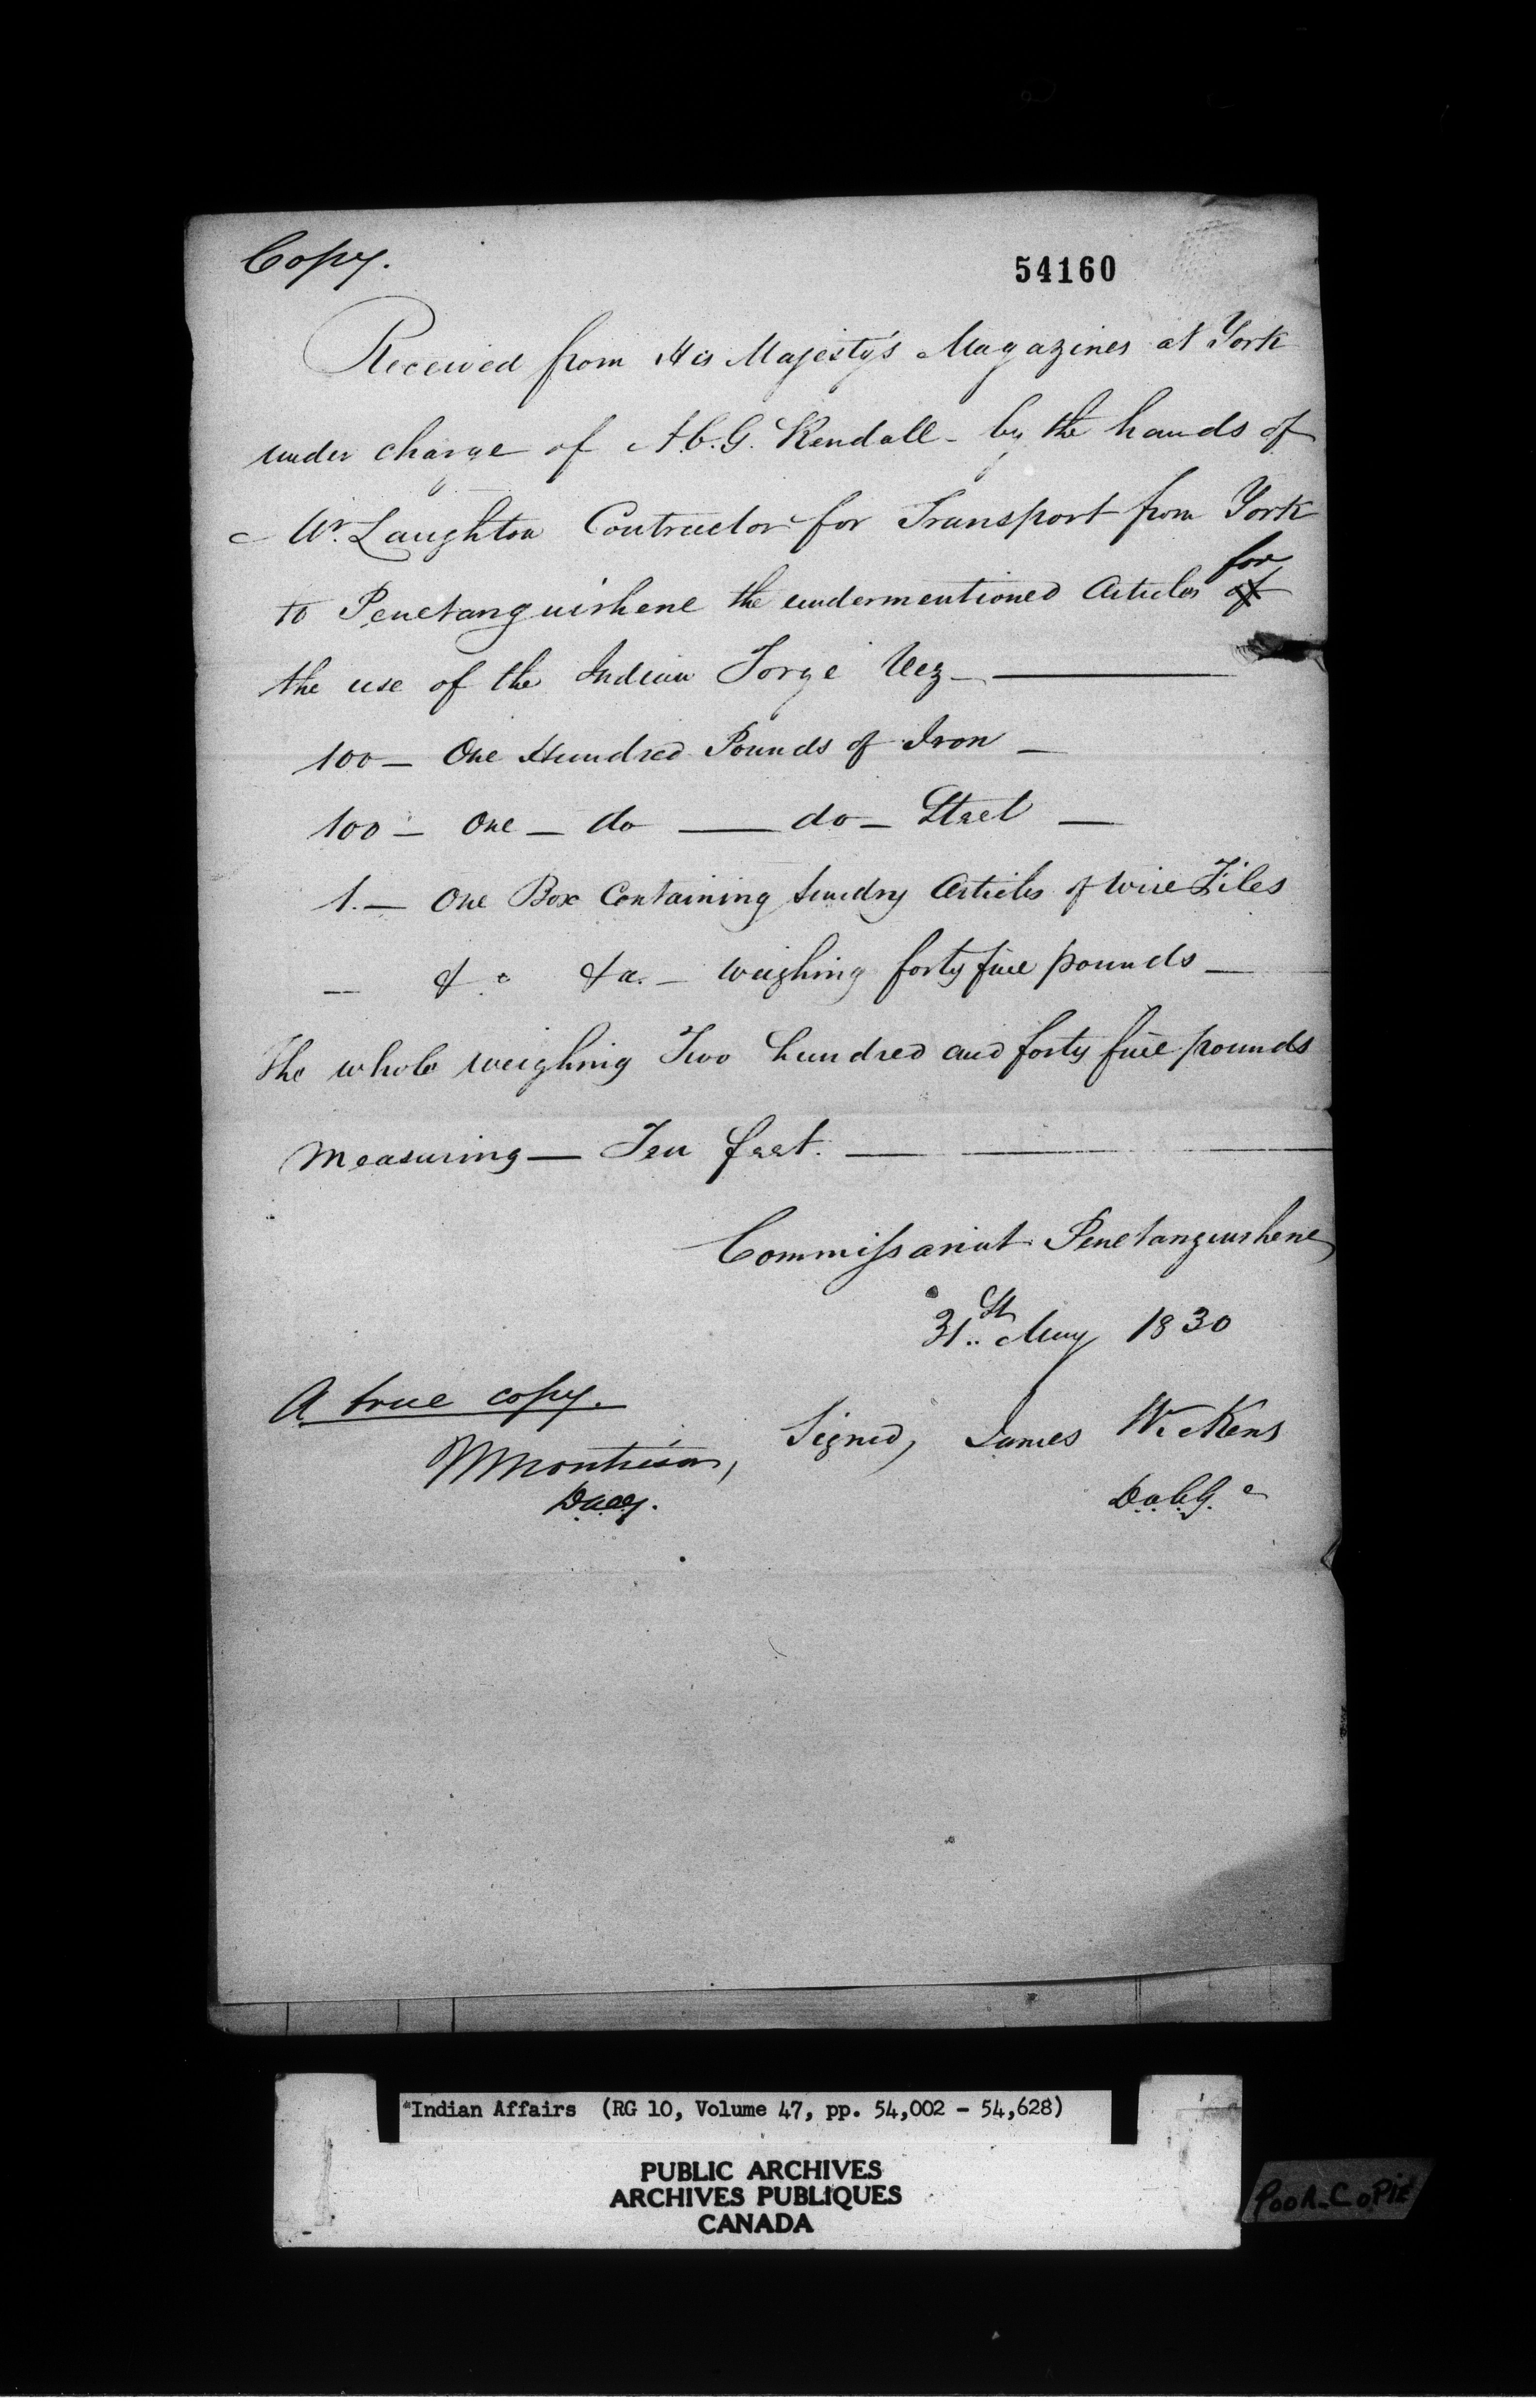 Copy.
54160
Received from His Majesty's Magazines at York
under charge of A.C.G. Kendall - by the hands of
Mr. Laughton Contractor for Transport from York
to Penetanguishene the undermentioned Articles of for
the use of the Indian Forge Viz -
100 - One Hundred Pounds of Iron -
100 - One - do - do - Steel -
1. - One Box Containing Sundry Articles of Wire Files
- &c &a. - weighing forty five pounds -
The whole weighing Two hundred and forty five pounds
Measuring - Ten feet. -
Commissariat Penetanguishene
31st May 1830
A true copy.
Signed, James Wickens
D.A.C.G.
*Indian Affairs (RG 10, Volume 47, pp. 54,002 - 54,628)
PUBLIC ARCHIVES
ARCHIVES PUBLIQUES
CANADA
POOR COPIE